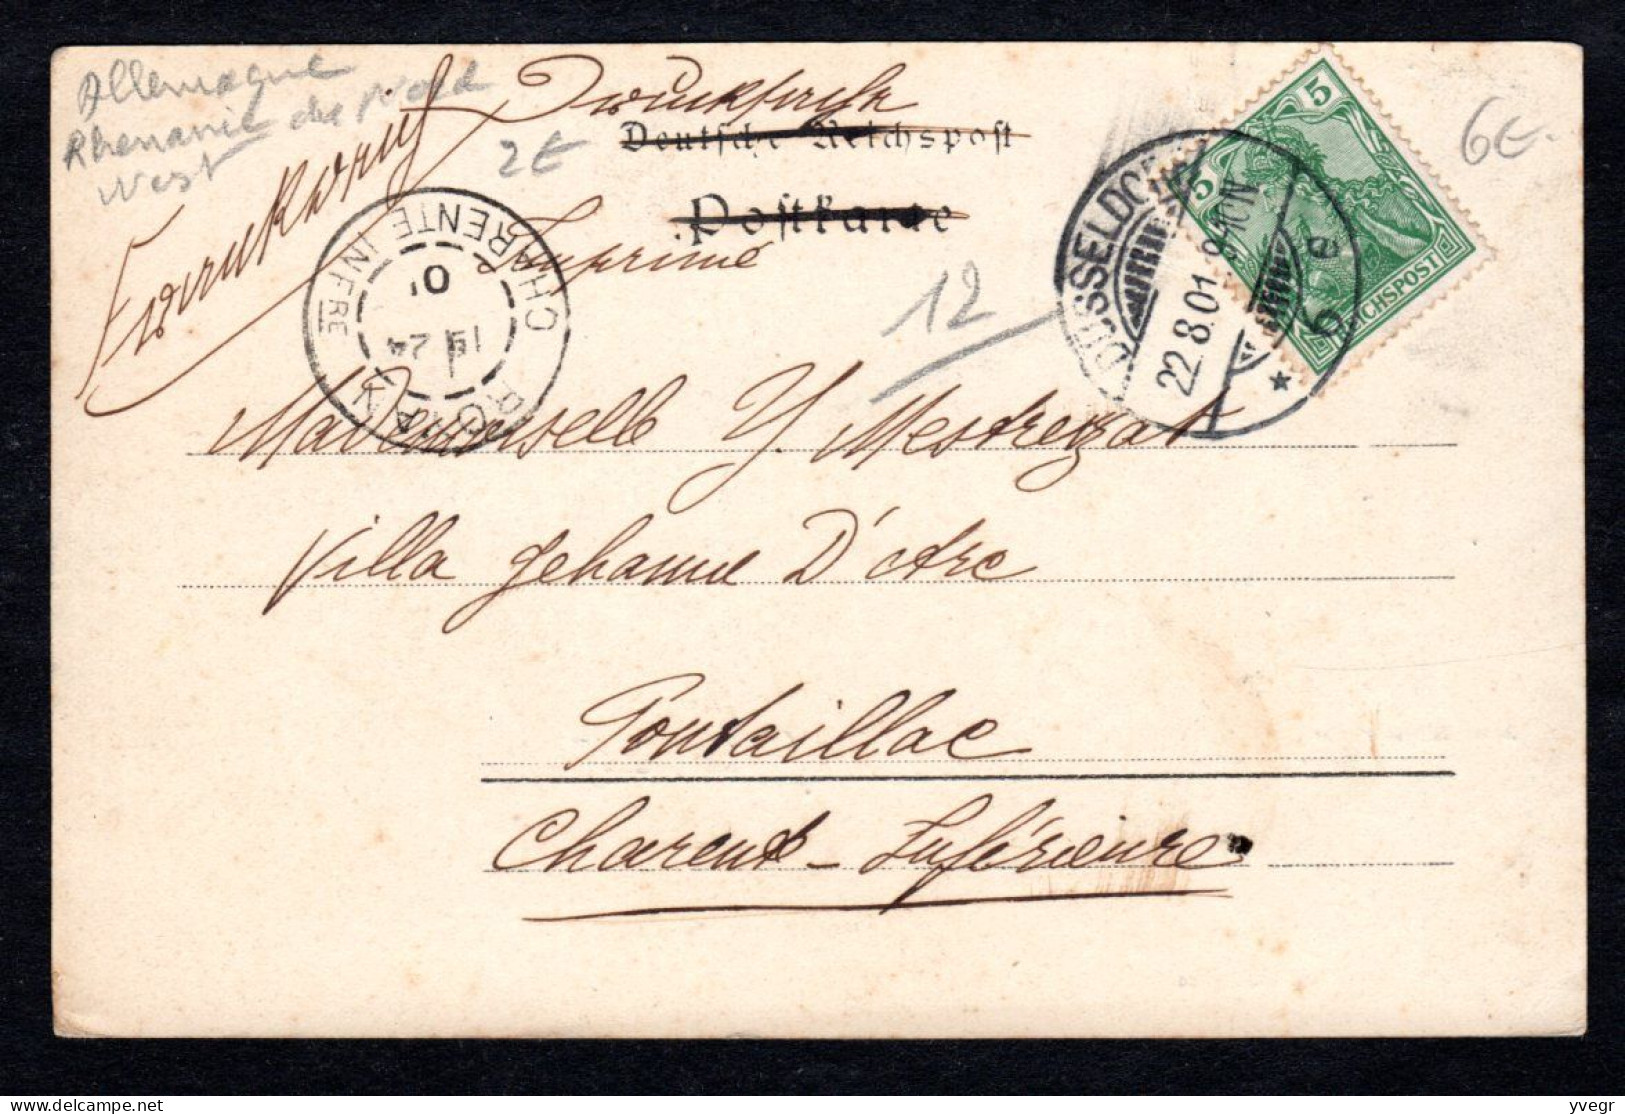 Allemagne
Rhenanie du Nord
West
2€
6€
12
Drucksache
Deutsche Reichspost
Postkarte
Imprimé
5
5
REICHSPOST
DÜSSELDORF
22.8.01. 8-9 N.
CHARENTE INFRE
ROYAN
24
01
Mademoiselle Y. Mestrezat
Villa Jehanne D'Arc
Pontaillac
Charente-Inférieure
delcampe.net
yvegr